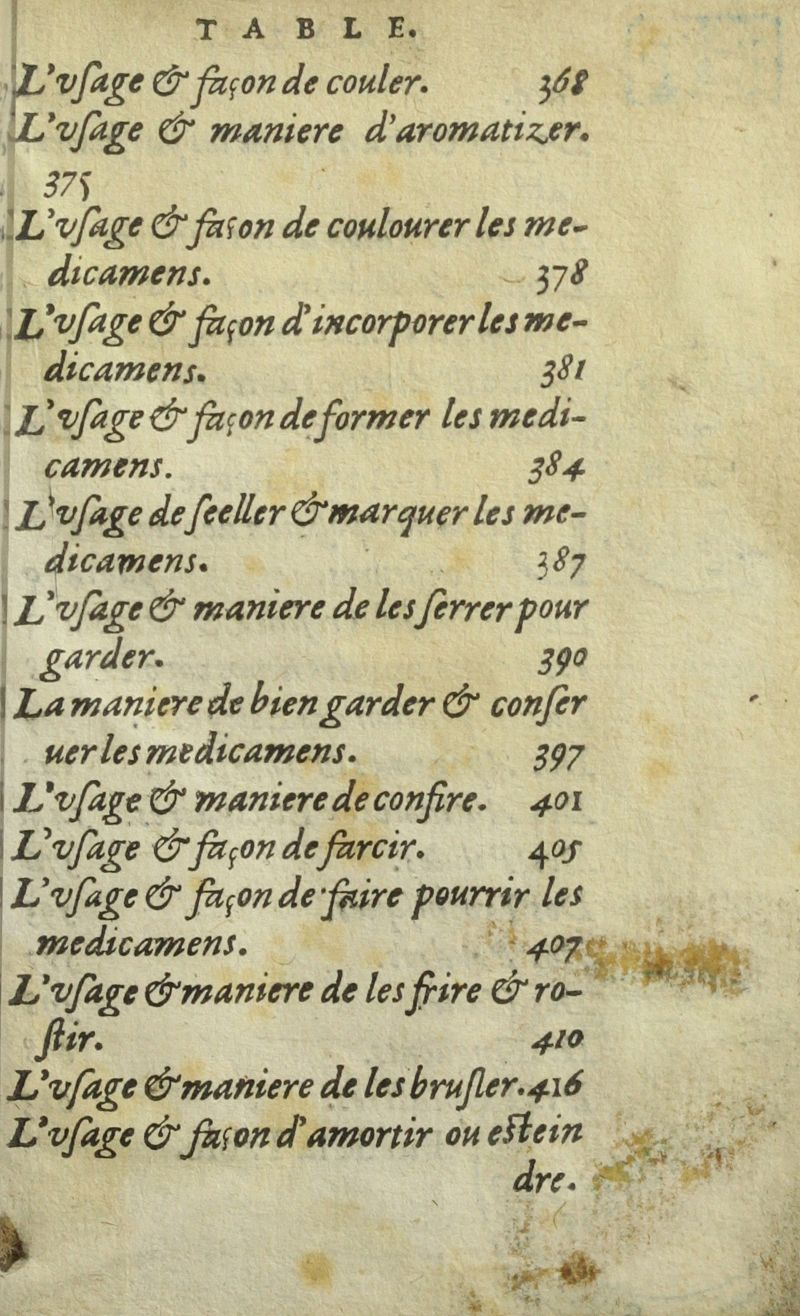 TABLE.
L'vſage & façon de couler. 368
L'vſage & maniere d'aromatizer.
375
L'vſage & façon de coulourer les me-
dicamens. 378
L'vſage & façon d'incorporer les me-
dicamens. 381
L'vſage & façon de former les medi-
camens. 384
L'vſage de ſeeller & marquer les me-
dicamens. 387
L'vſage & maniere de les ſerrer pour
garder. 390
La maniere de bien garder & conſer
uer les medicamens. 397
L'vſage & maniere de confire. 401
L'vſage & façon de farcir. 405
L'vſage & façon de faire pourrir les
medicamens. 407
L'vſage & maniere de les frire & ro-
ſtir. 410
L'vſage & maniere de les bruſler. 416
L'vſage & façon d'amortir ou eſtein
dre.